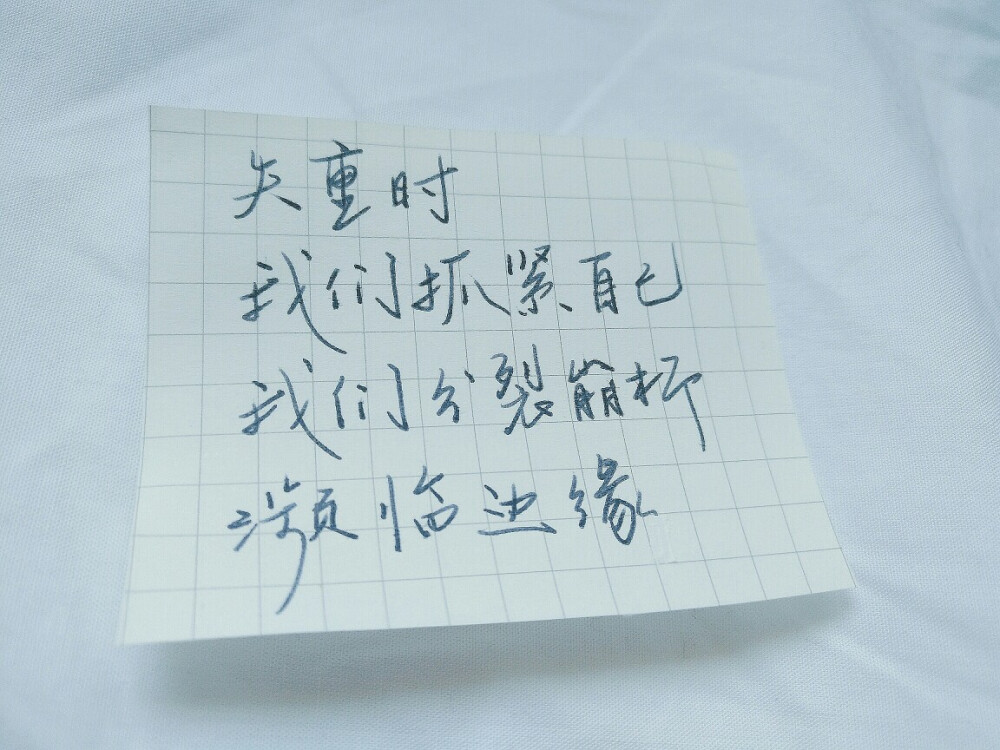 失重时
我们抓紧自己
我们分裂崩坏
濒临边缘